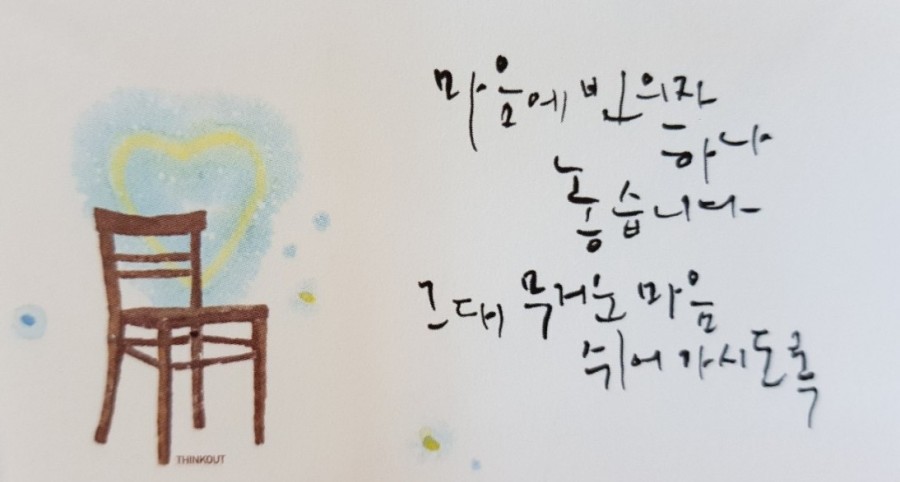 마음에 빈 의자
하나
놓습니다
그대 무거운 마음
쉬어 가시도록
THINKOUT